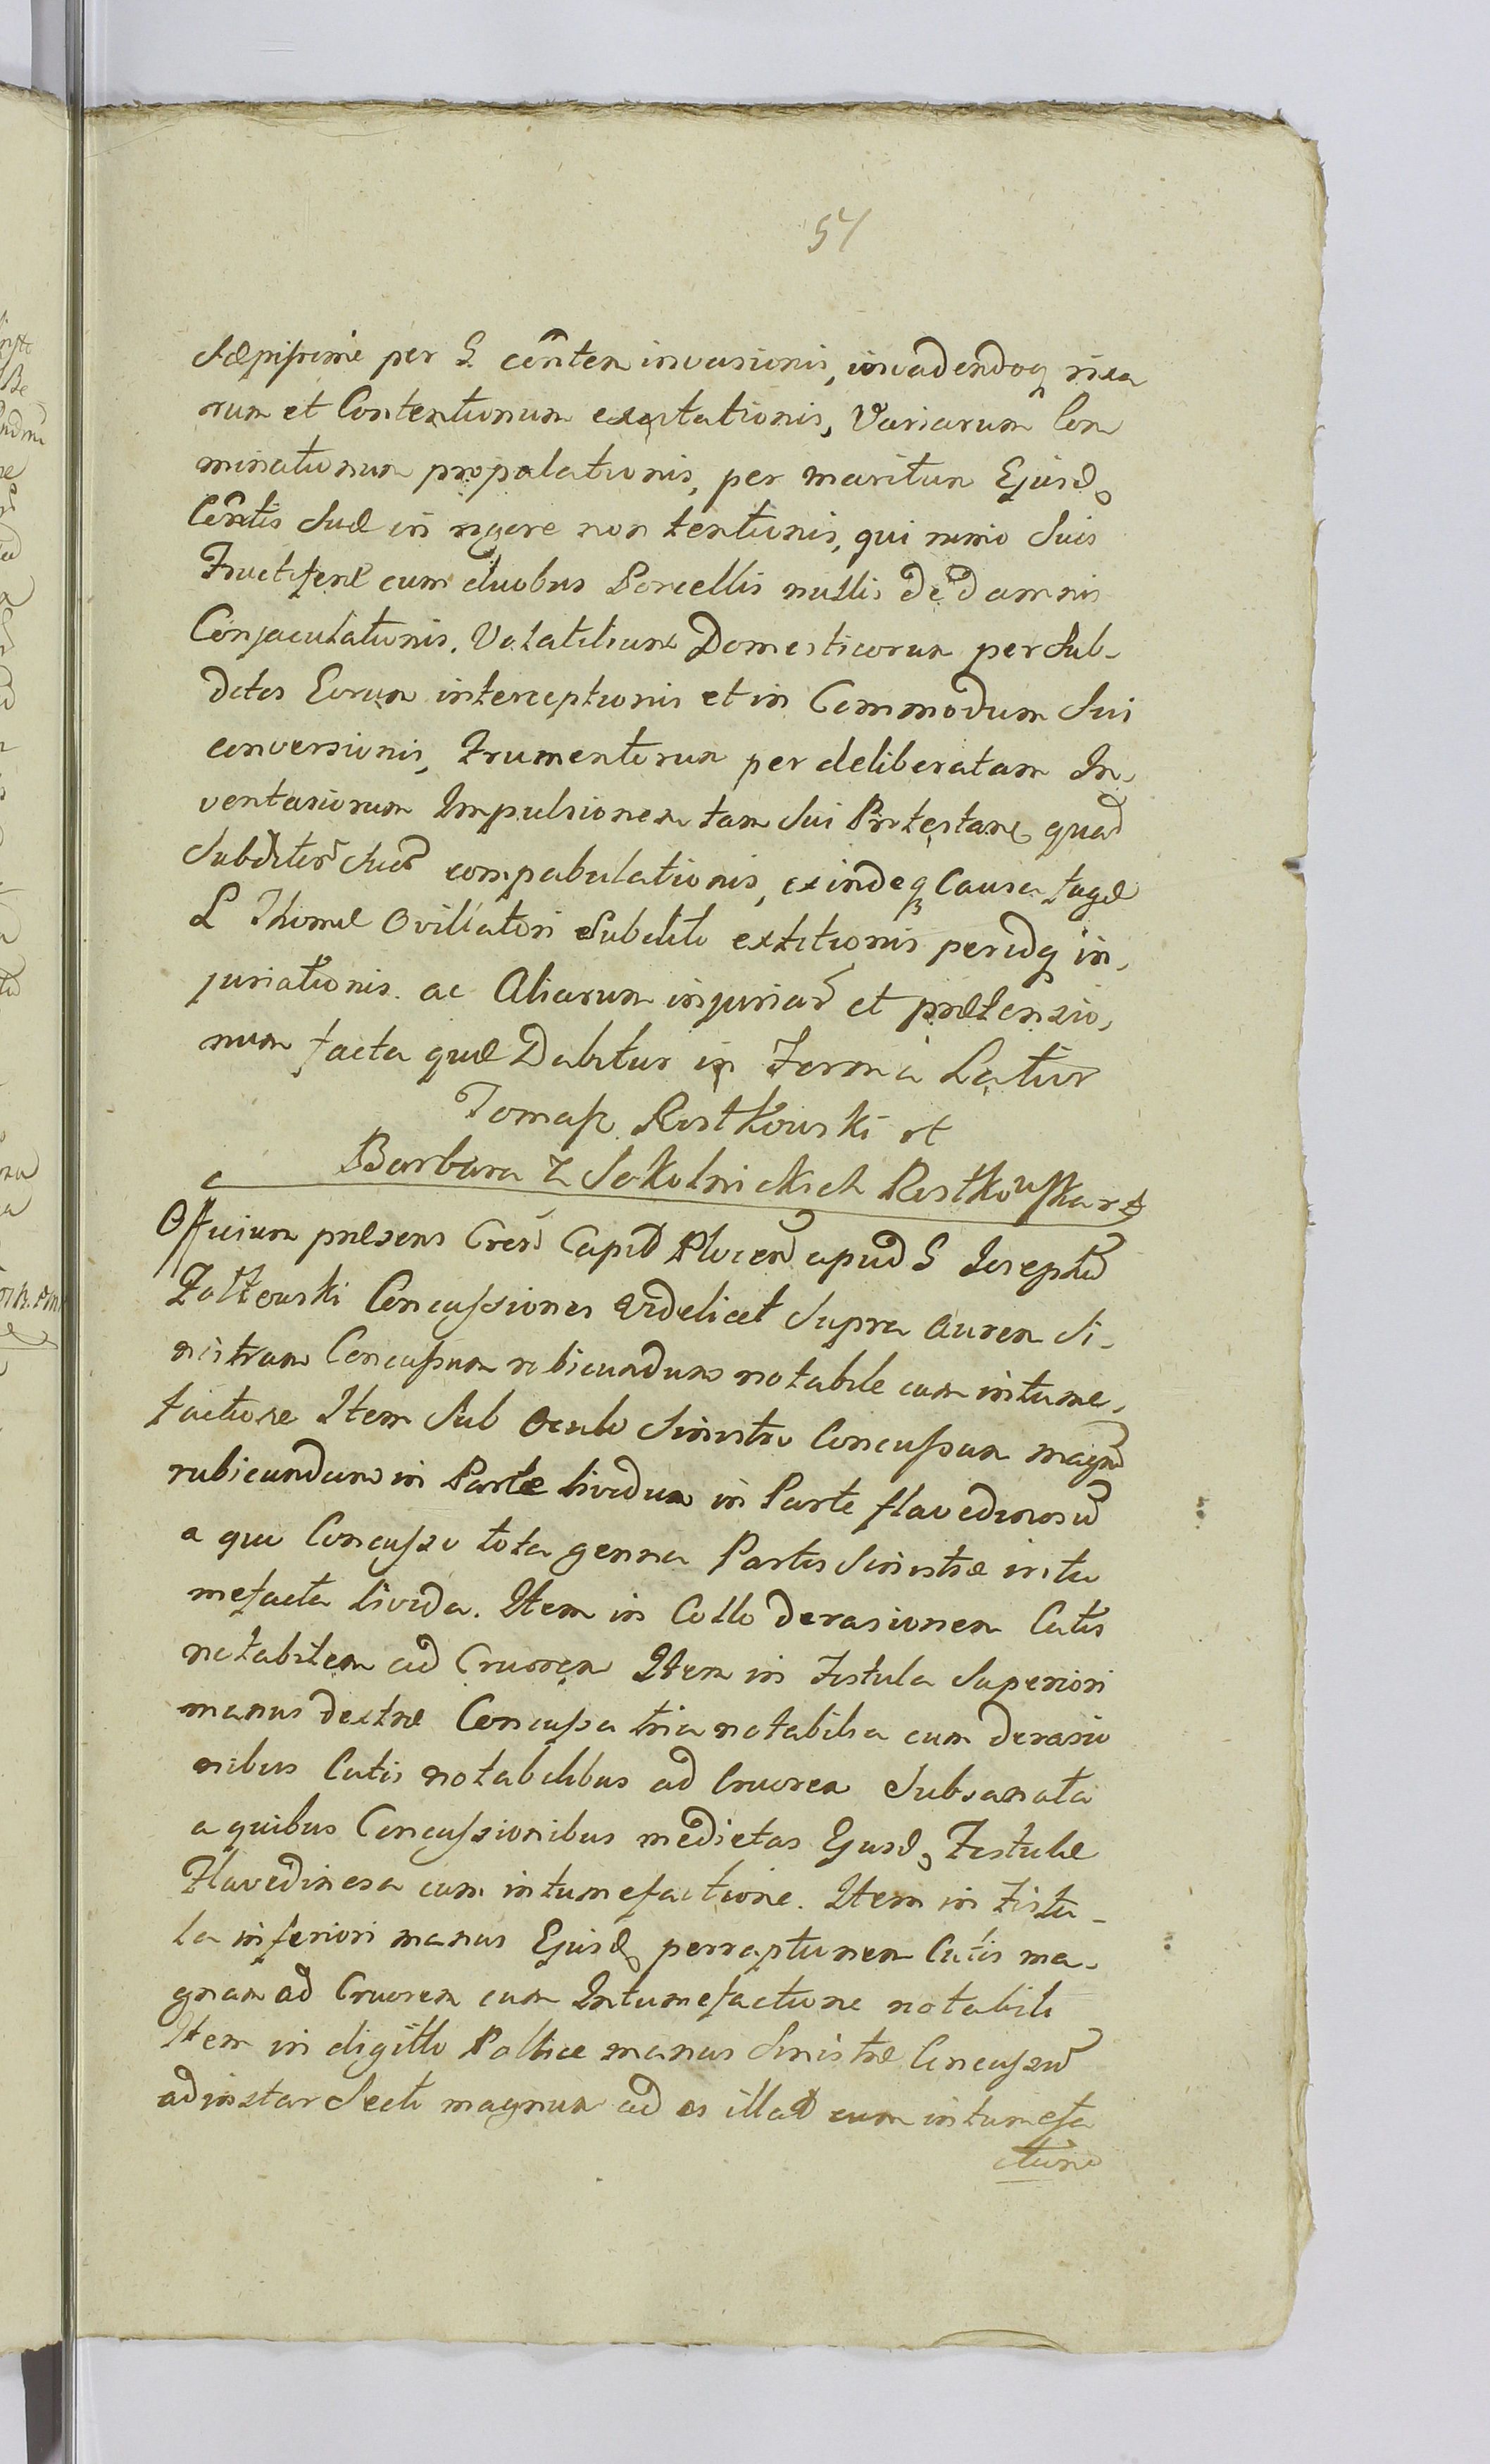 54
Sæpissime per G. Cönten invasionis, invadendoq rixa
rum et Contentionum exaitationis, Variarum Com
minationum propalationis, per maritum Ejusd
Cöntis Suæ in rigore non tentionis, qui nimio Suis
Fructiferæ cum duobus Porcellis nullis de damnis
Conjaculationis, Volatilium Domesticorum per Sub-
ditos Eorum interceptionis et in Commodum Sui
conversionis, Frumentorum per deliberatam In,
ventariorum Impulsionem tam Sui Protestans quad
Subditor Suor compabulationis, exindeq Causa fugæ
L Thomæ Oviliatori Subdito extitionis peridq in,
juriationis. ac Aliarum injuriar et prætensio,
num facta quæ Dabitur in Forma Latior
Tomasz Rostkowski et
Barbara Z Sokolnickich Rostkowska
Officium præsens Cren Capit Plocen apud G Josephu
Zołtowski Concussiones videlicet Supra aurem Si,
nistram Concussum rubicundum notabile cum intume,
factione Item Sub Oculo Sinistro Concussum magnu
rubicundum in Parte lividum in Parte flavedinosu
a quo Concusso tota genna Partis Sinistræ intu
mefacta livida. Item in Collo derasionem Cutis
notabilem ad Cruorem Item in Fistula Superiori
manus dextræ Concussa tria notabilia cum derasio
nibus Cutis notabilibus ad Cruorem Subsanata
a quibus Concussionibus medietas Ejusd Fistulæ
Flavedinosa cum intumefactione. Item in Fistu-
la inferiori manus Ejusd perraptionem Cutis ma-
gnam ad Cruorem cum Intumefactione notabili
Item in digitto Pollice manus Sinistræ Concussu
adinstar Secti magnum ad os illat cum intumefa
ctione